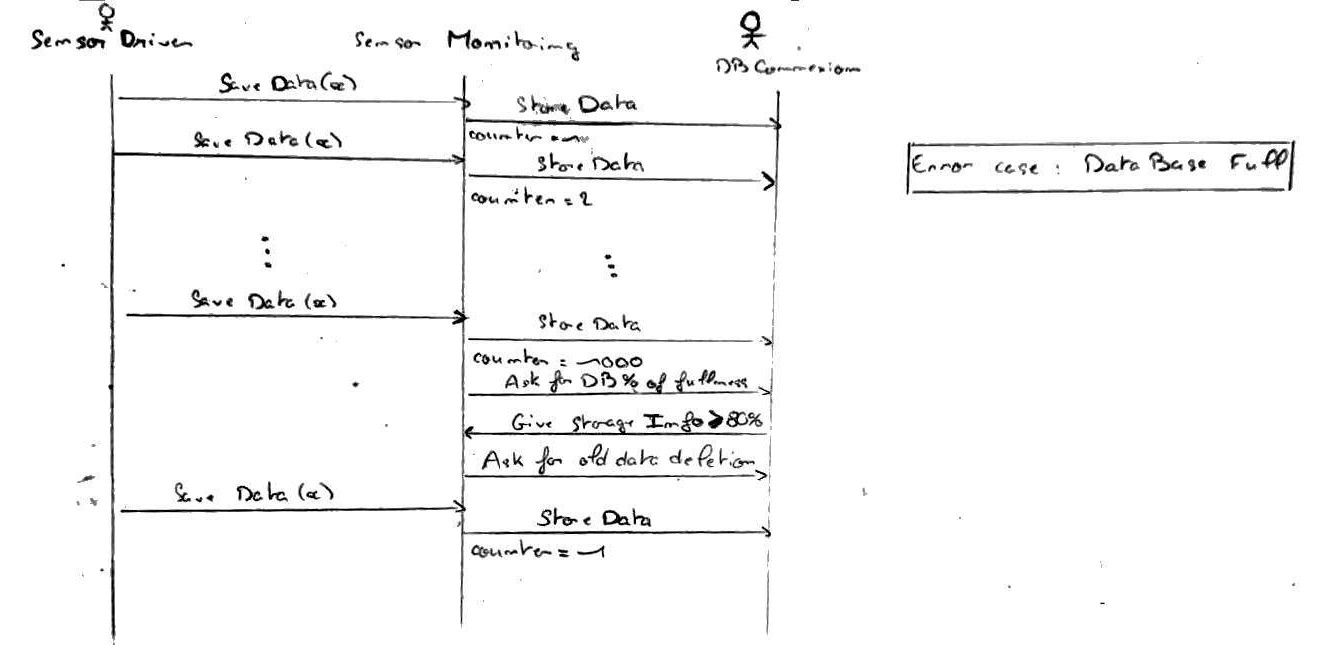 Sensor Driver
Sensor Monitoring
DB Connexion
Save Data(x)
Store Data
counter = 1
Save Data(x)
Store Data
counter = 2
Error case : DataBase Full
Save Data(x)
Store Data
counter = 1000
Ask for DB % of fullness
Give Storage Info > 80%
Ask for old data deletion
Save Data(x)
Store Data
counter = 1